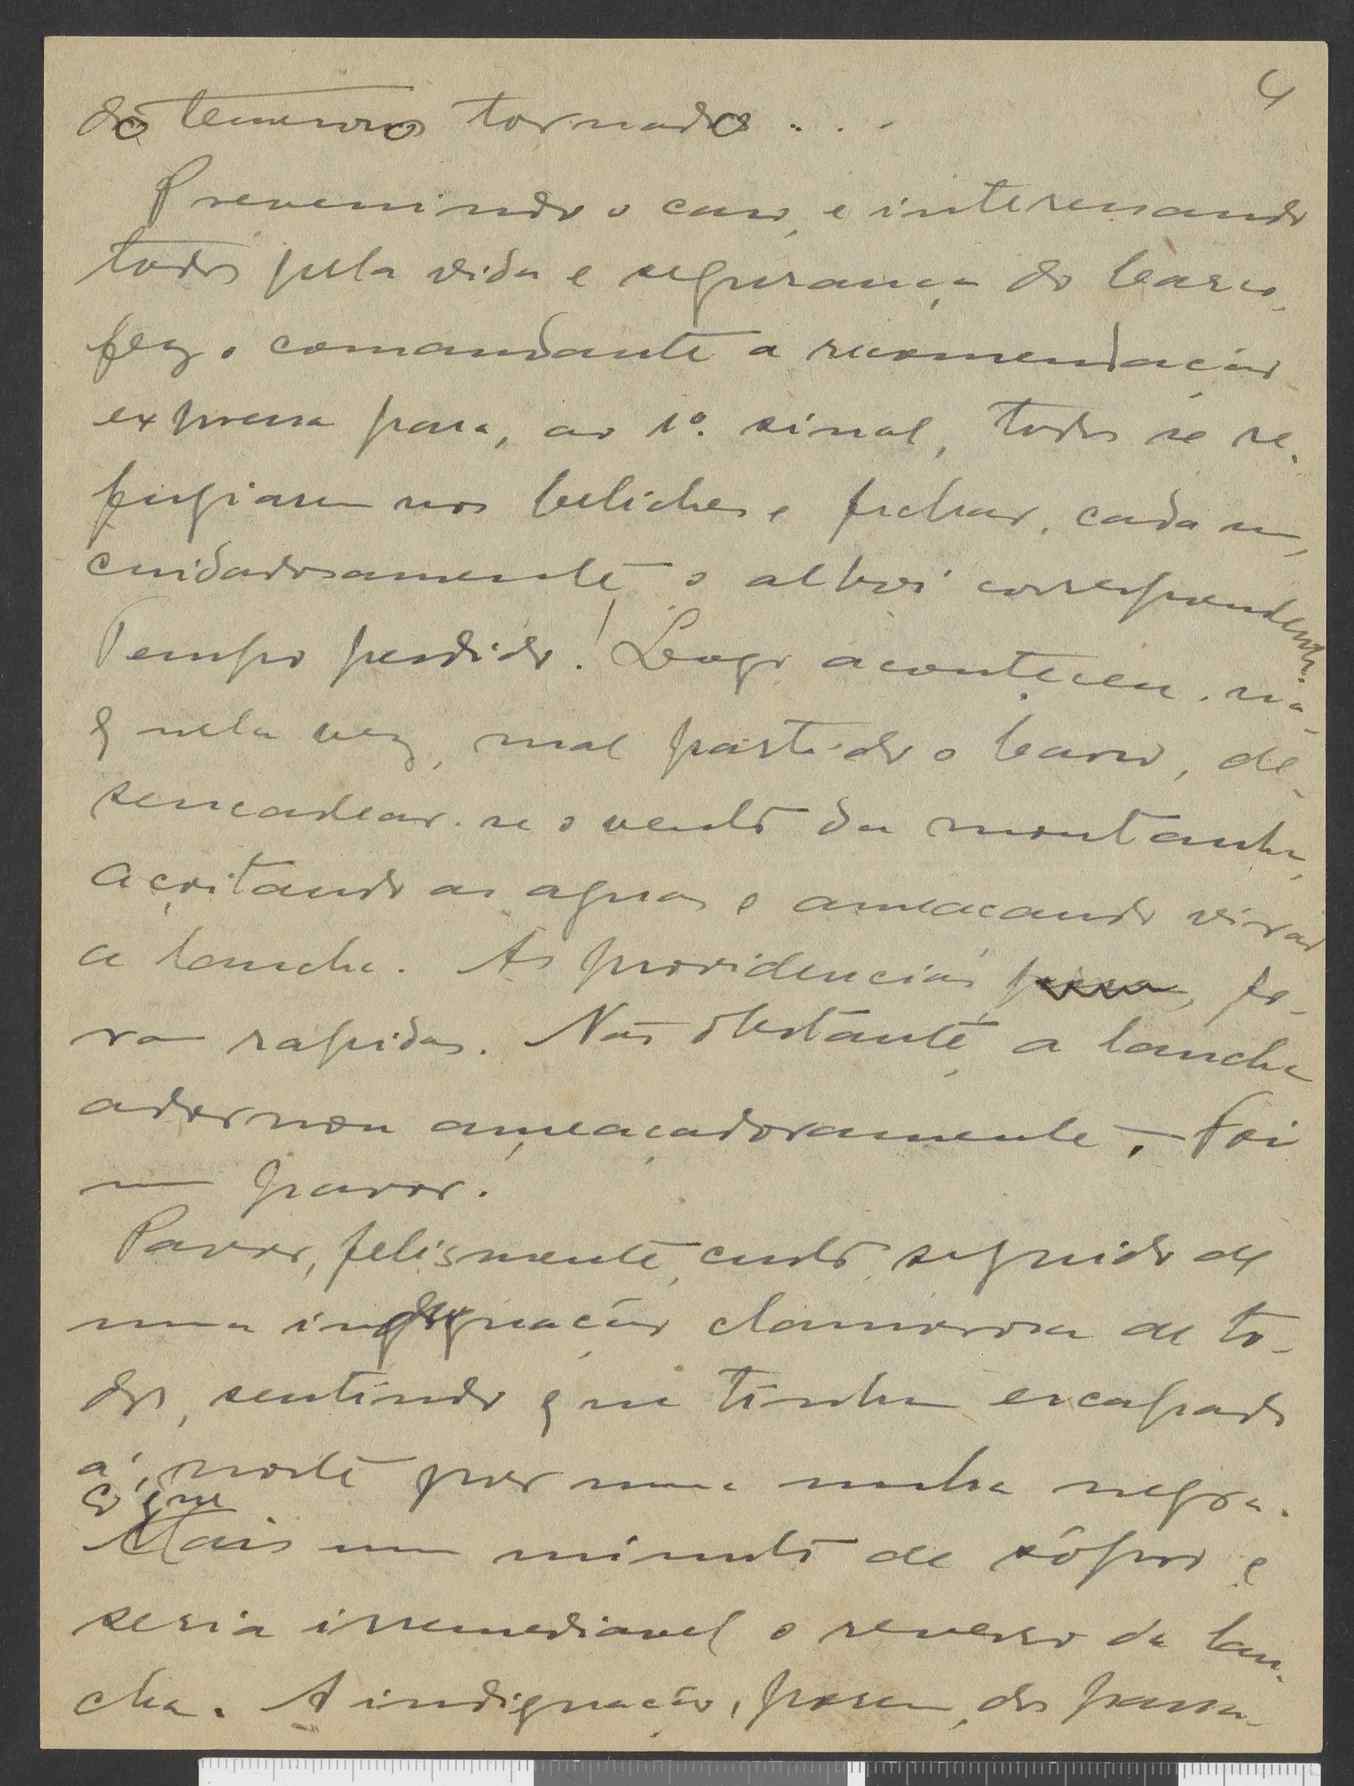 4
do temeroso tornado...
Prevenindo o caso, e interessando
todos pela vida e segurança do barco,
fez o comandante a recomendação
expressa para, ao 1º. sinal, todos se re-
fugiarem nos beliches e fechar, cada um,
cuidadosamente o alboi correspondente.
Tempo perdido! Logo aconteceu, na-
quela vez, mal partido o barco, de-
sencadear-se o vento da montanha,
açoitando as aguas e ameaçando virar
a lancha. As providencias, fo-
ram rapidas. Não obstante, a lancha
adornou ameaçadoramente. Foi
um pavor.
Pavor, felismente, curto, seguido de
uma indignação clamorosa de to-
dos, sentindo que tinham escapado
á morte por uma unha negra.
É que
Mais um minuto de sôpro e
seria irremediavel o reverso da lan-
cha. A indignação, porem, dos passa-